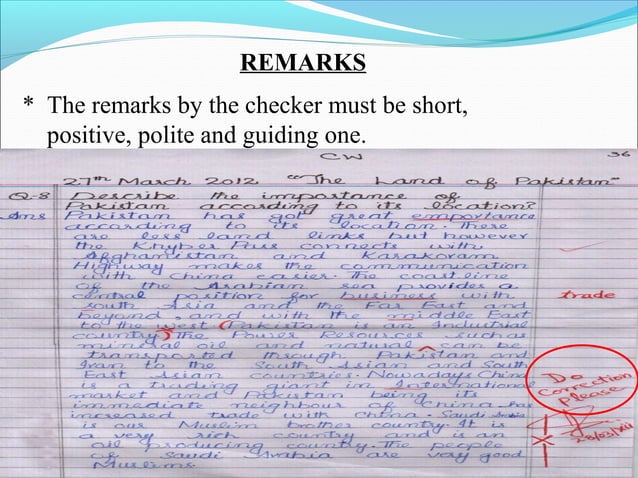 REMARKS
* The remarks by the checker must be short,
positive, polite and guiding one.
CW 36
27th March 2012 "The Land of Pakistan"
Q-8 Describe the importance of
Pakistan according to its location?
Ans Pakistan has got great emportance
according to its location. There
are less land links but however
the Khyber Pass connects with
Afghanistan and Karakoram
Highway makes the communication
with China easier. The coastline
of the Arabian sea provides a
central position for business with trade
south Asia and the Far East and
beyond, and with the middle East
to the west (Pakistan is an Industrial
country) The Power Resources such as
mineral oil and natural can be
transported through Pakistan and
Iran to the South Asian and South
East Asian countries. Nowadays China
is a trading giant in International
market and Pakistan being its
immediate neighbour of China has
increased trade with China. Saudi Arabia
is our Muslim brother country. It is
a very rich country and is an
oil producing country. The people
of Saudi Arabia are very good
Muslims.
Do
correction
please
28/03/